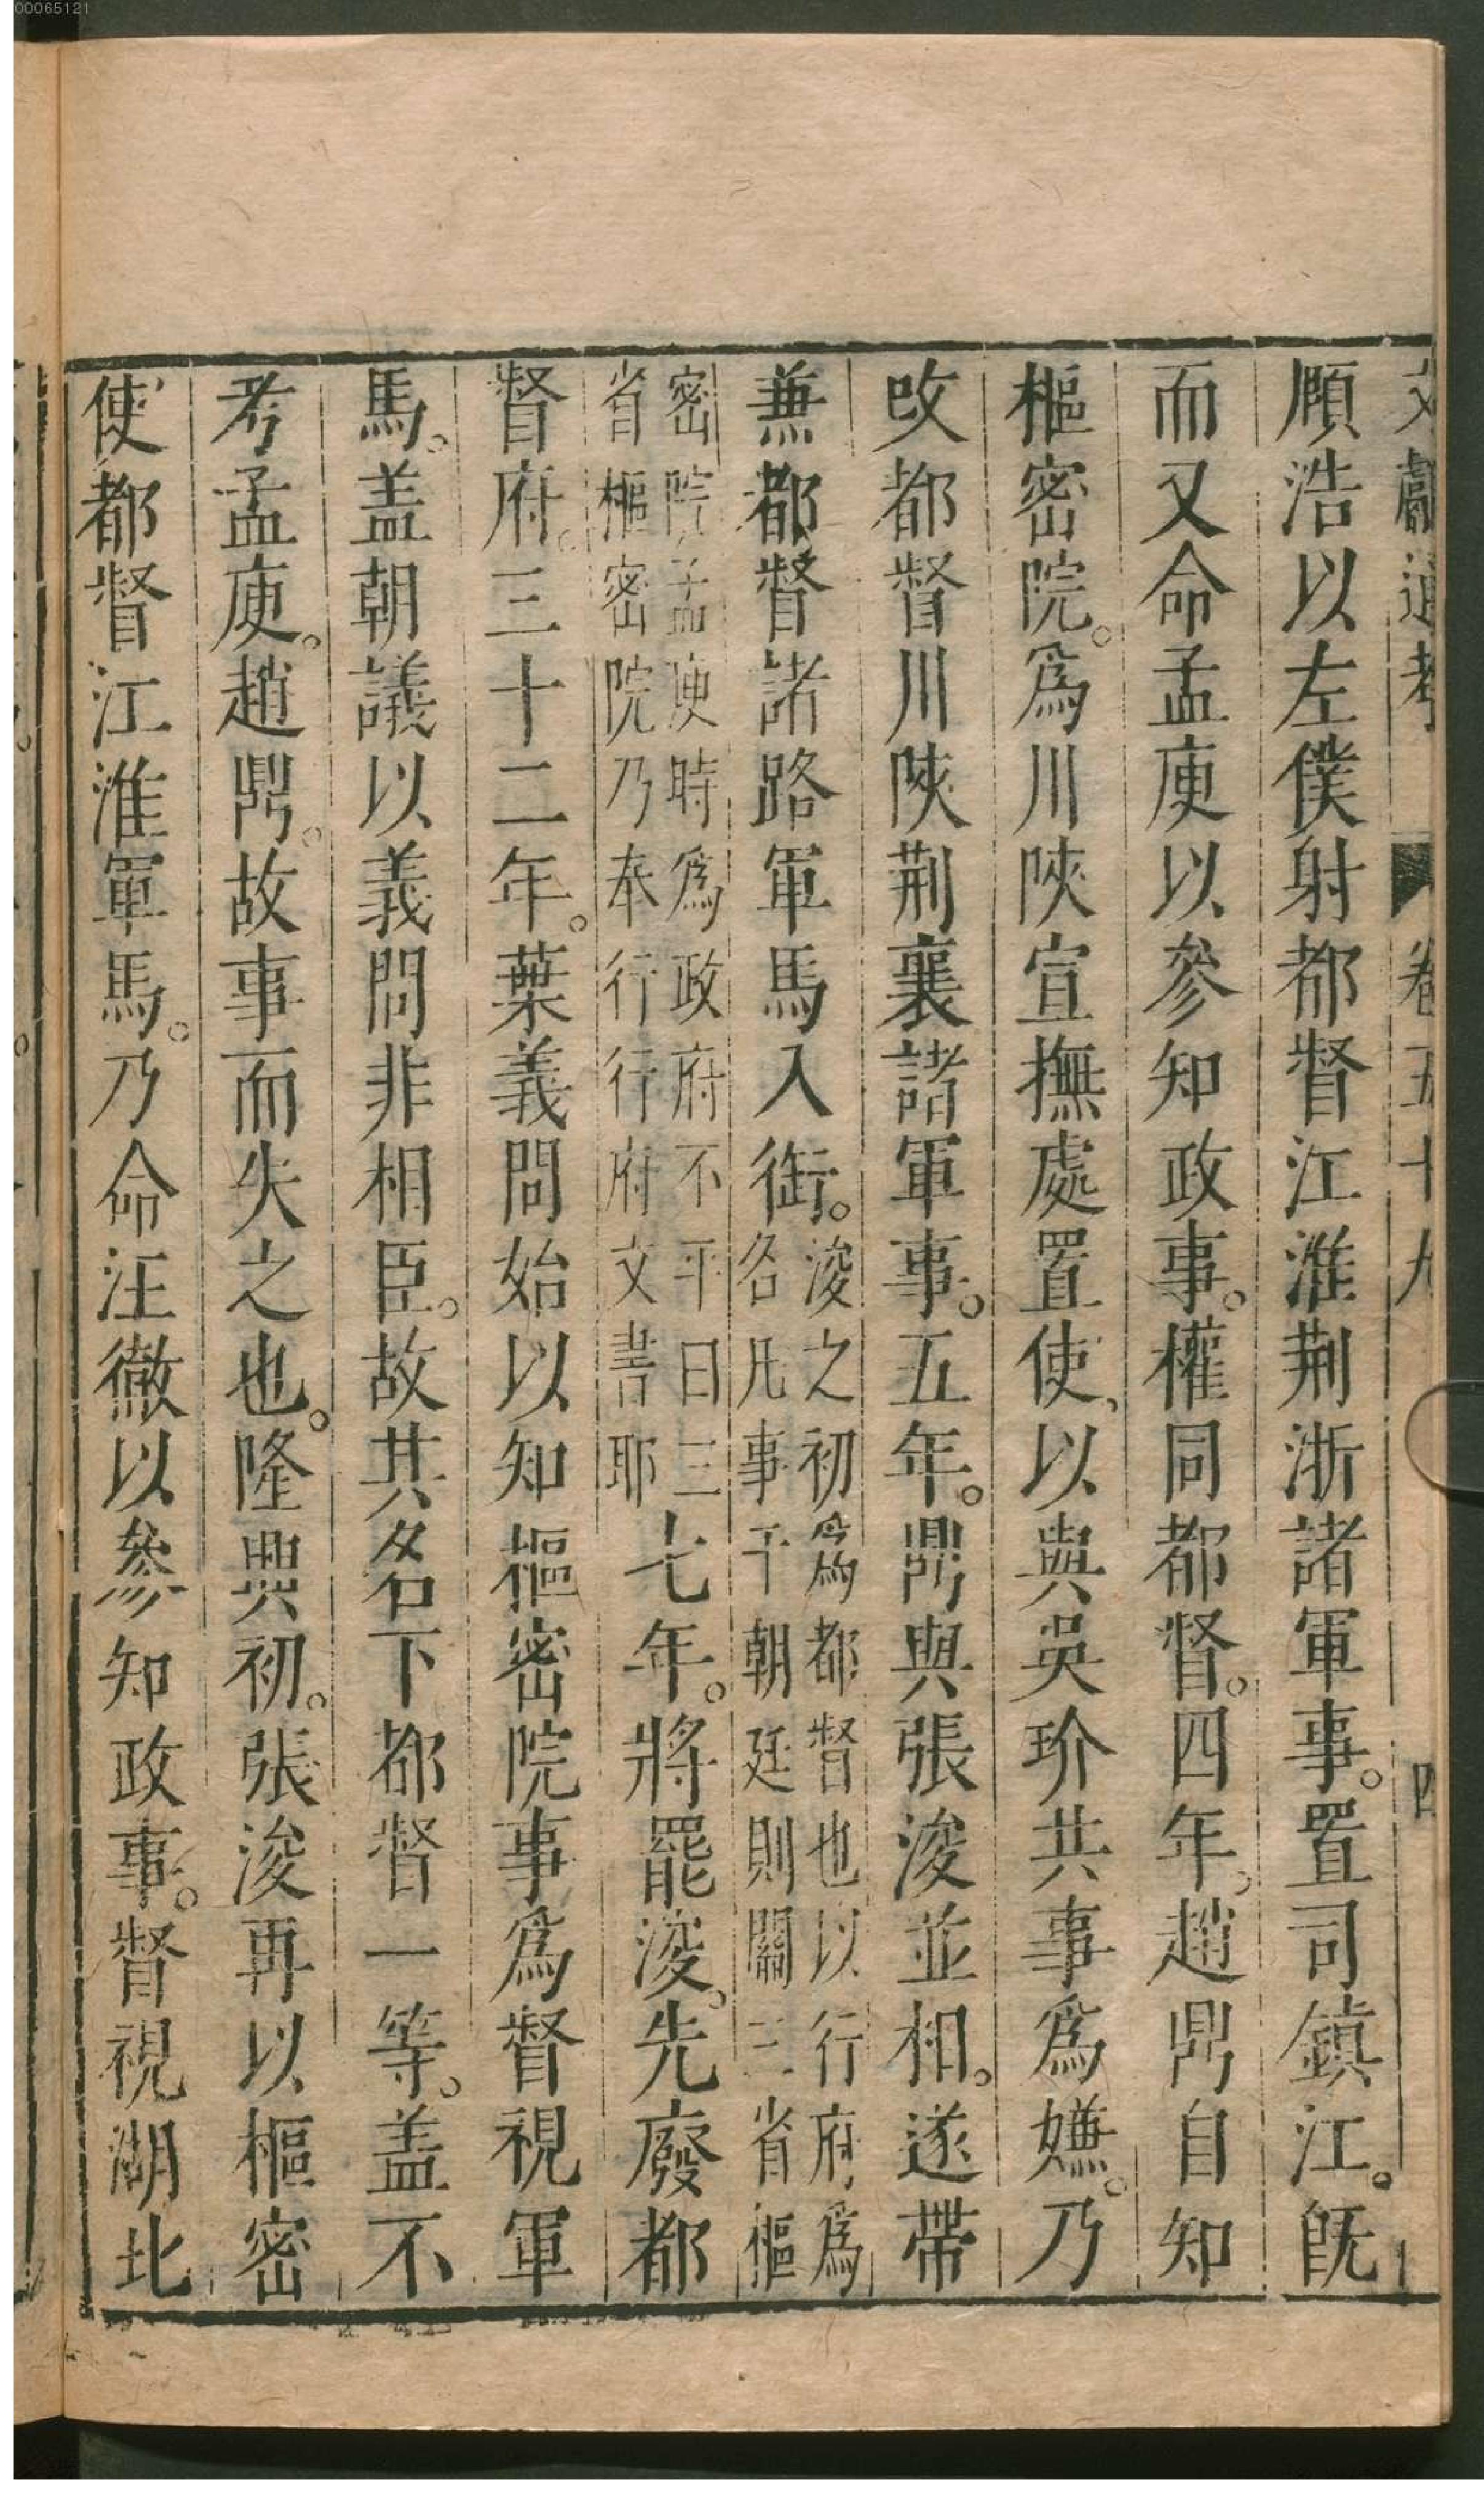 00065121
文獻通考 卷五十九 四
頤浩以左僕射都督江淮荆浙諸軍事。置司鎮江。旣
而又命孟庾以參知政事。權同都督。四年。趙鼎自知
樞密院。爲川陜宣撫處置使、以與吳玠共事爲嫌。乃
改都督川陜荆襄諸軍事。五年。鼎與張浚並相。遂帶
兼都督諸路軍馬入銜。浚之初爲都督也以行府爲
名凡事干朝廷則關三省樞
密院孟庾時爲政府不平曰三
省樞密院乃奉行行府文書耶
七年。將罷浚。先廢都
督府。三十二年。葉義問始以知樞密院事爲督視軍
馬。盖朝議以義問非相臣。故其名下都督一等。盖不
考孟庾。趙鼎。故事而失之也。隆興初。張浚再以樞密
使都督江淮軍馬。乃命汪徹以參知政事。督視湖北